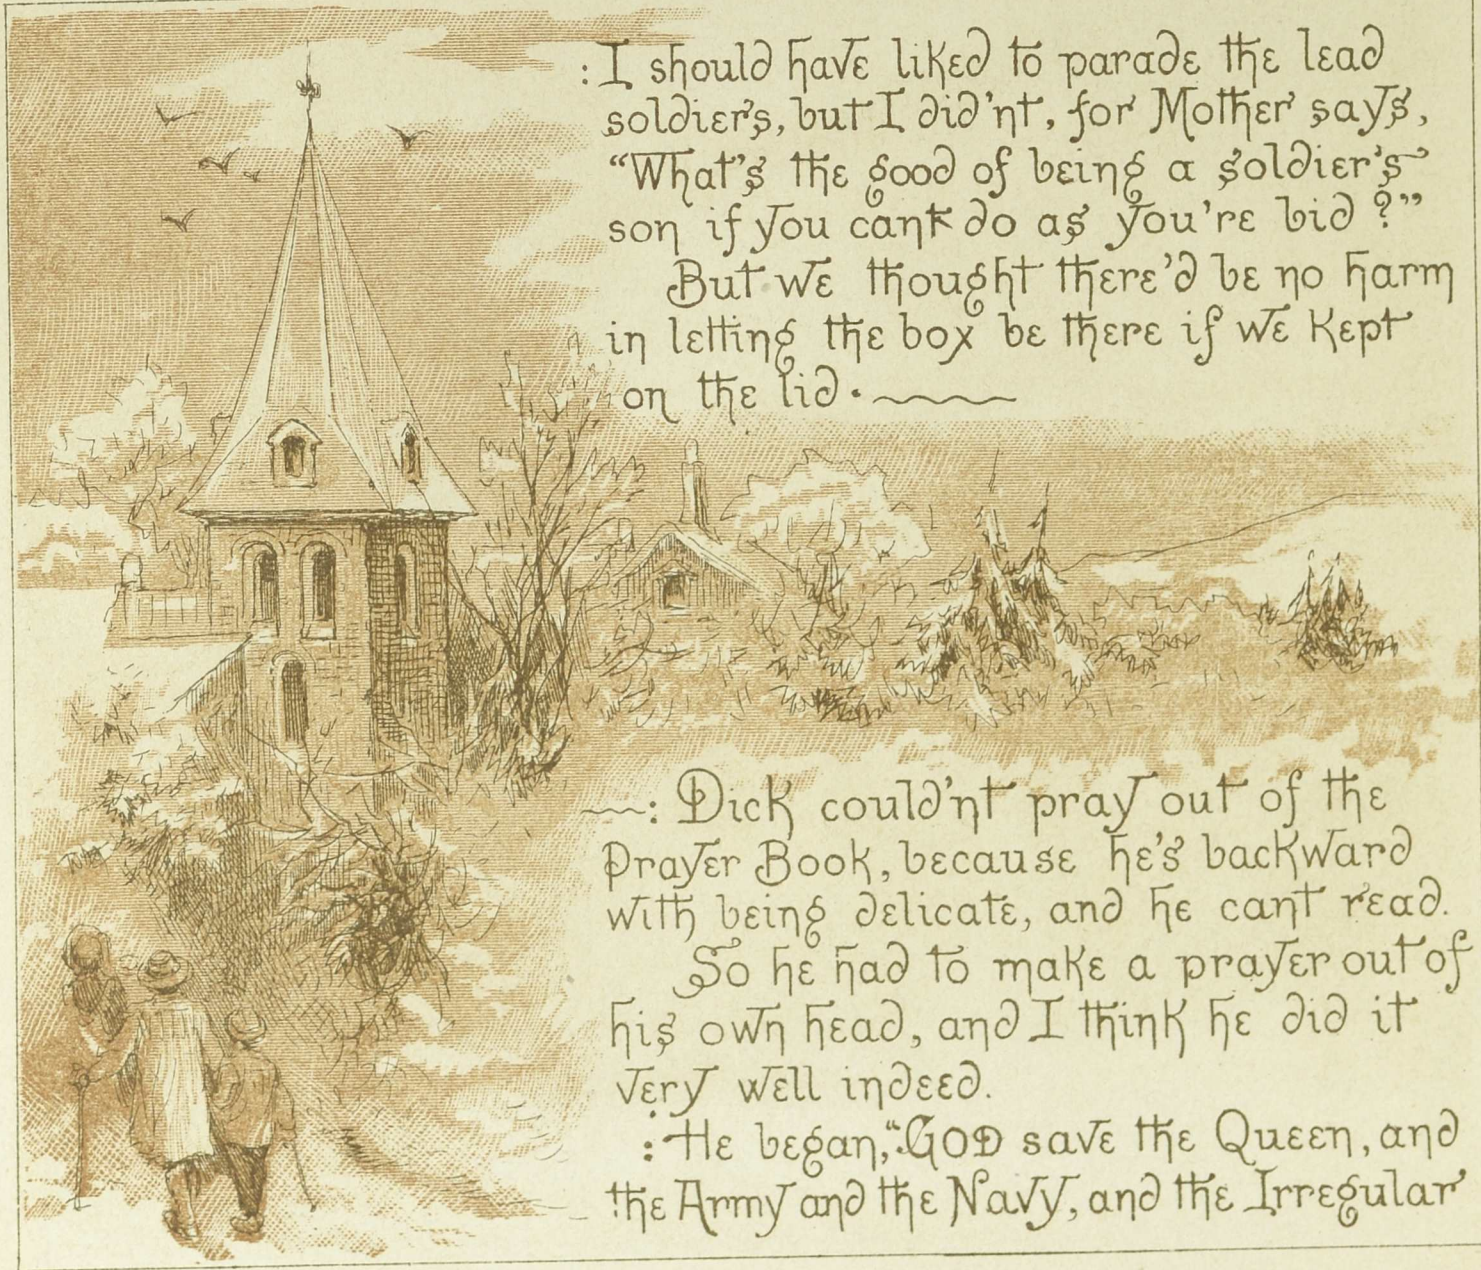 : I should have liked to parade the lead
soldiers, but I did'nt, for Mother says,
“What's the good of being a soldier's
son if you cant do as you're bid ?”
But we thought there'd be no harm
in letting the box be there if we kept
on the lid .
: Dick could'nt pray out of the
Prayer Book, because he's backward
with being delicate, and he cant read.
So he had to make a prayer out of
his own head, and I think he did it
very well indeed.
: He began, “GOD save the Queen, and
the Army and the Navy, and the Irregular